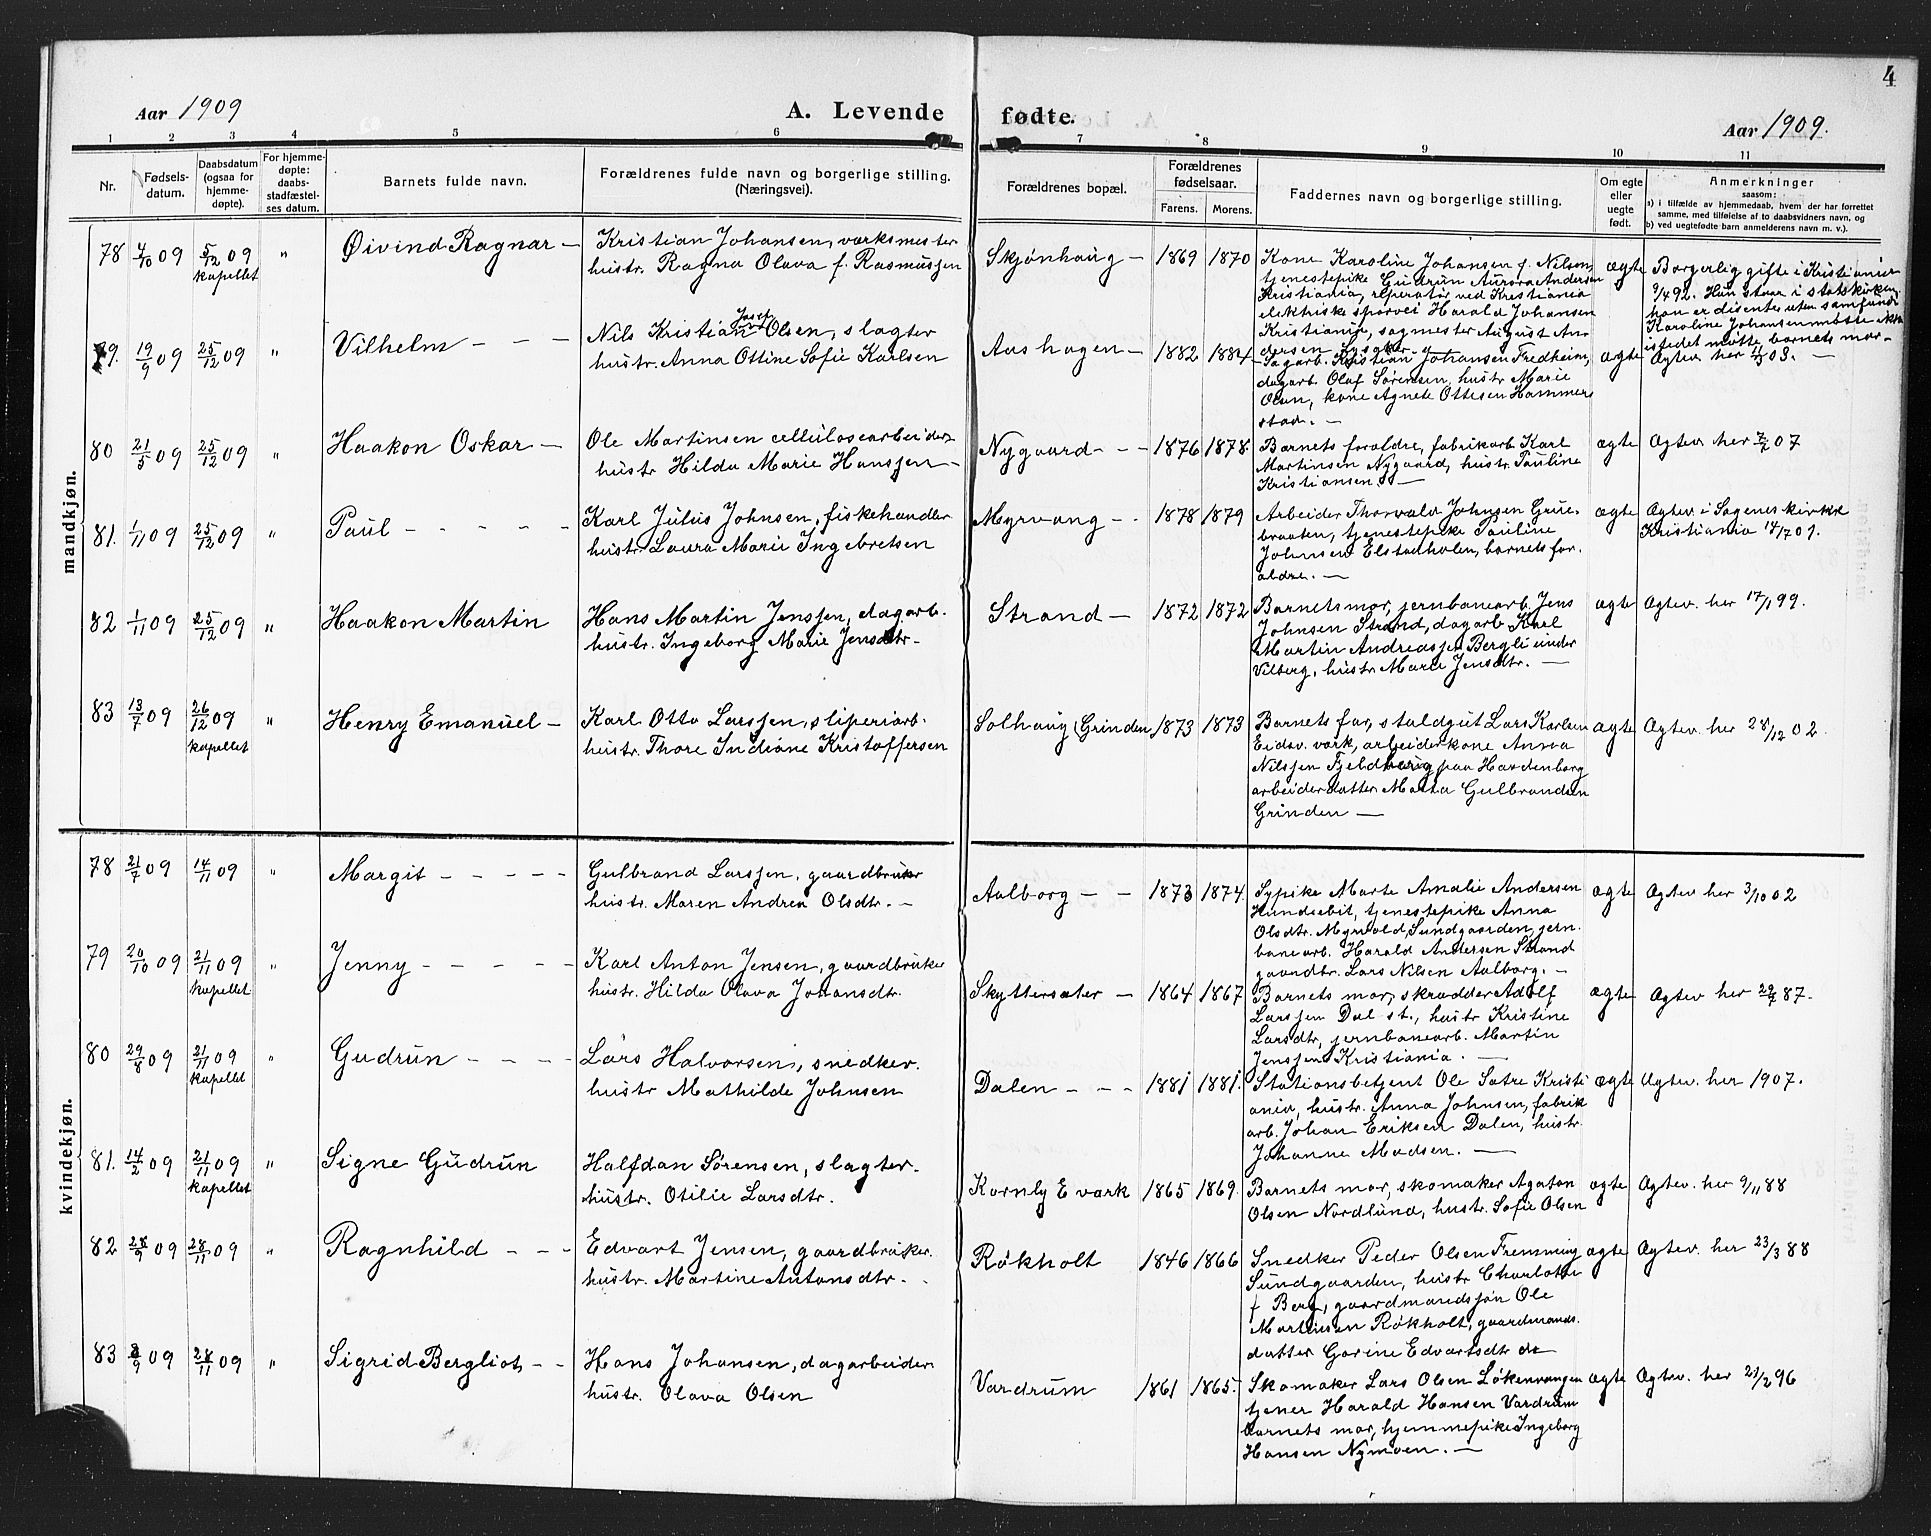 4
Aar 1909
A. Levende
fødte.
Aar 1909.
1 2 3 4 5 6 7 8 9 10 11
Nr.
Fødsels-
datum.
Daabsdatum
(ogsaa for
hjemme-
døpte).
For hjemme-
døpte:
daabs-
stadfæstel-
ses datum.
Barnets fulde navn.
Forældrenes fulde navn og borgerlige stilling.
(Næringsvei).
Forældrenes bopæl.
Forældrenes
fødselsaar.
Farens. Morens.
Faddernes navn og borgerlige stilling.
Om egte
eller
uegte
født.
Anmerkninger
saasom:
a) i tilfælde av hjemmedaab, hvem der har forrettet
samme, med tilføielse af to daabsvidners navn, og
b) ved uegtefødte barn anmelderens navn m. v.).
mandkjøn.
78 4/10 09 5/12 09 " Øivind Ragnar —
kapellet
Kristian Johansen, værksmester
hustr. Ragna Olava f. Rasmussen
Skjønhaug — 1869 1870
Kone Karoline Johansen f. Nilsen,
tjenestepike Gudrun Aurora Andersen
Kristiania, reparatør ved Kristiania
elektriske sporvei Harald Johansen
Kristiania, sagmester August An-
dersen
ægte
Borgerlig gifte i Kristiania
9/4 92. Hun staar i statskirken,
han er disenter uten samfund.
Karoline Johansen møtte ikke
istedet møtte barnets mor —
79. 19/9 09 25/12 09 " Vilhelm — — —
Nils Kristian Josef Olsen, slagter
hustr. Anna Ottine Sofie Karlsen
Aashagen — 1882 1884
Sagarb. Kristian Johansen Fredheim,
dagarb. Olaf Sørensen, hustr. Marie
Olsen, kone Agnete Ottesen Hammer-
stad. —
ægte Ægtev. her 03. —
80 21/5 09 25/12 09 " Haakon Oskar —
Ole Martinsen cellulosearbeider
hustr Hilda Marie Hanssen —
Nygaard — — 1876 1878.
Barnets forældre, fabrikarb Karl
Martinsen Nygaard, hustr. Pauline
Kristiansen. —
ægte Ægtev her 07
81. 1/11 09 25/12 09 " Paul — — — —
Karl Julius Johnsen, fiskehandler
hustr. Laura Marie Ingebretsen
Myrvang — 1878 1879
Arbeider Thorvald Johnsen Grue-
braaten, tjenestepike Pauline
Johnsen Elstadholen, barnets for-
ældre. —
ægte Ægtev i Sagenes kirke
Kristiania 14/7 01.
82 1/11 09 25/12 09 " Haakon Martin
Hans Martin Jenssen, dagarb.
hustr. Ingeborg Marie Jensdtr. —
Strand — 1872 1872
Barnets mor, jernbanearb. Jens
Johnsen Strand, dagarb Karl
Martin Andreassen Bergli under
Vilberg, hustr Maria Jensdtr. —
ægte Ægtev. her 17/1 99.
83 13/7 09 26/12 09 " Henry Emanuel —
kapellet
Karl Otto Larssen, sliperiarb.
hustr. Thore Indiane Kristoffersen
Solhaug (Grinden 1873 1873
Barnets far, staldgut Lars Karlsen
Eidsv. værk, arbeiderkone Anna
Nilssen Fjeldhaug paa Hardenborg
arbeiderdatter Marta Gulbrandsen
Grinden —
ægte Ægtev. her 28/12 02.
kvindekjøn.
78 21/7 09 14/11 09 " Margit — — — — —
Gulbrand Larssen, gaardbruker
hustr. Maren Andrea Olsdtr. —
Aalborg — — 1873 1874.
Sypike Marte Amalie Andersen
Hundsebit, tjenestepike Anna
Olsdtr. Myrvold, Sundgaarden, jern-
banearb. Harald Andersen Strand
gaardbr. Lars Nilsen Aalborg. —
ægte Ægtev her 3/10 02
79 20/10 09 21/11 09 " Jenny — — — — —
kapellet
Karl Anton Jensen, gaardbruker
hustr. Hilda Olava Johansdtr.
Skyttersæter — 1864 1867
Barnets mor, skrædder Adolf
Larssen Dal st., hustr Kristine
Larsdtr, jernbanearb. Martin
Jenssen Kristiania. —
ægte Ægtev her 87.
80 29/8 09 21/11 09 " Gudrun — — — —
kapellet
Lars Halvorsen, snedker.
hustr Mathilde Johnsen
Dalen — — — 1881 1881.
Stationsbetjent Ole Sætre Kristi-
ania, hustr. Anna Johnsen, fabrik
arb. Johan Eriksen Dalen, hustr.
Johanne Madsen. —
ægte Ægtev. her 1907.
81. 14/2 09 21/11 09 " Signe Gudrun
kapellet
Halfdan Sørensen, slagter.
hustr. Otilie Larsdtr.
Kornly E værk 1865 1869.
Barnets mor, skomaker Agaton
Olsen Nordlund, hustr. Sofie Olsen
ægte Ægtev. her 9/11 88
82 28/9 09 28/11 09 " Ragnhild — — —
Edvart Jensen, gaardbruker.
hustr. Martine Antonsdtr. —
Røkholt 1846 1866
Snedker Peder Olsen Fremming
Sundgaarden, hustr Charlotte
f Berg, gaardmandssøn Ole
Martinsen Røkholt, gaardmands-
datter Gorine Edvartsdtr do
ægte Ægtev. her 23/3 88
83 8/9 09 28/11 09 " Sigrid Bergliot — —
Hans Johansen, dagarbeider
hustr. Olava Olsen
Vardrum 1861 1865.
Skomaker Lars Olsen Løkenvangen
tjener Harald Hansen Vardrum
barnets mor, hjemmepike Ingeborg
Hansen Nymoen. —
ægte Ægtev. her 21/2 96